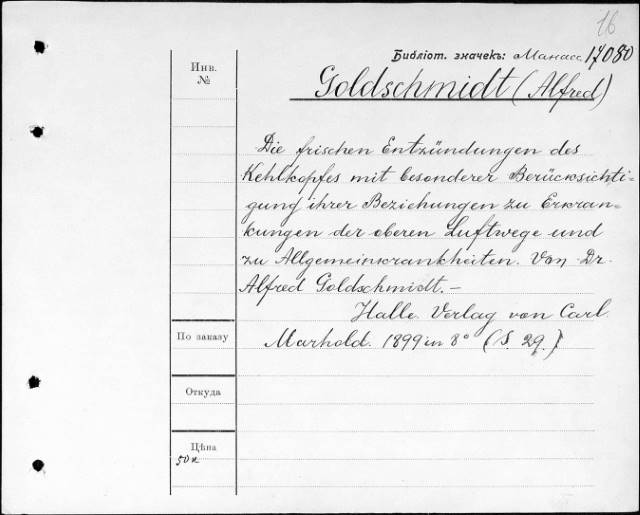 16
Библіот. значекъ: Манасс 17080
Инв.
№
Goldschmidt (Alfred)
Die frischen Entzündungen des
Kehlkopfes mit besonderer Berücksichti-
gung ihrer Beziehungen zu Erkran-
kungen der oberen Luftwege und
zu Allgemeinkrankheiten. Von Dr.
Alfred Goldschmidt.-
Halle. Verlag von Carl
Marhold. 1899 in 8° (S. 29.)
По заказу
Откуда
Цѣна
50к